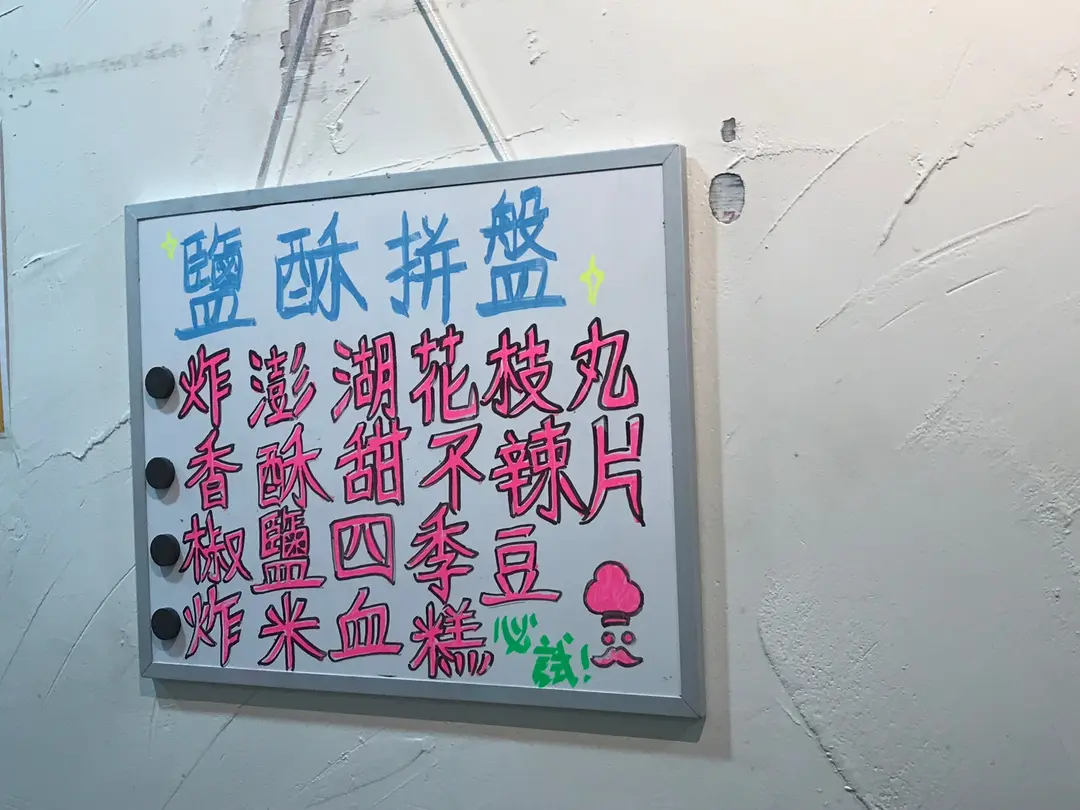 鹽酥拼盤
炸澎湖花枝丸
香酥甜不辣片
椒鹽四季豆
炸米血糕
必試!